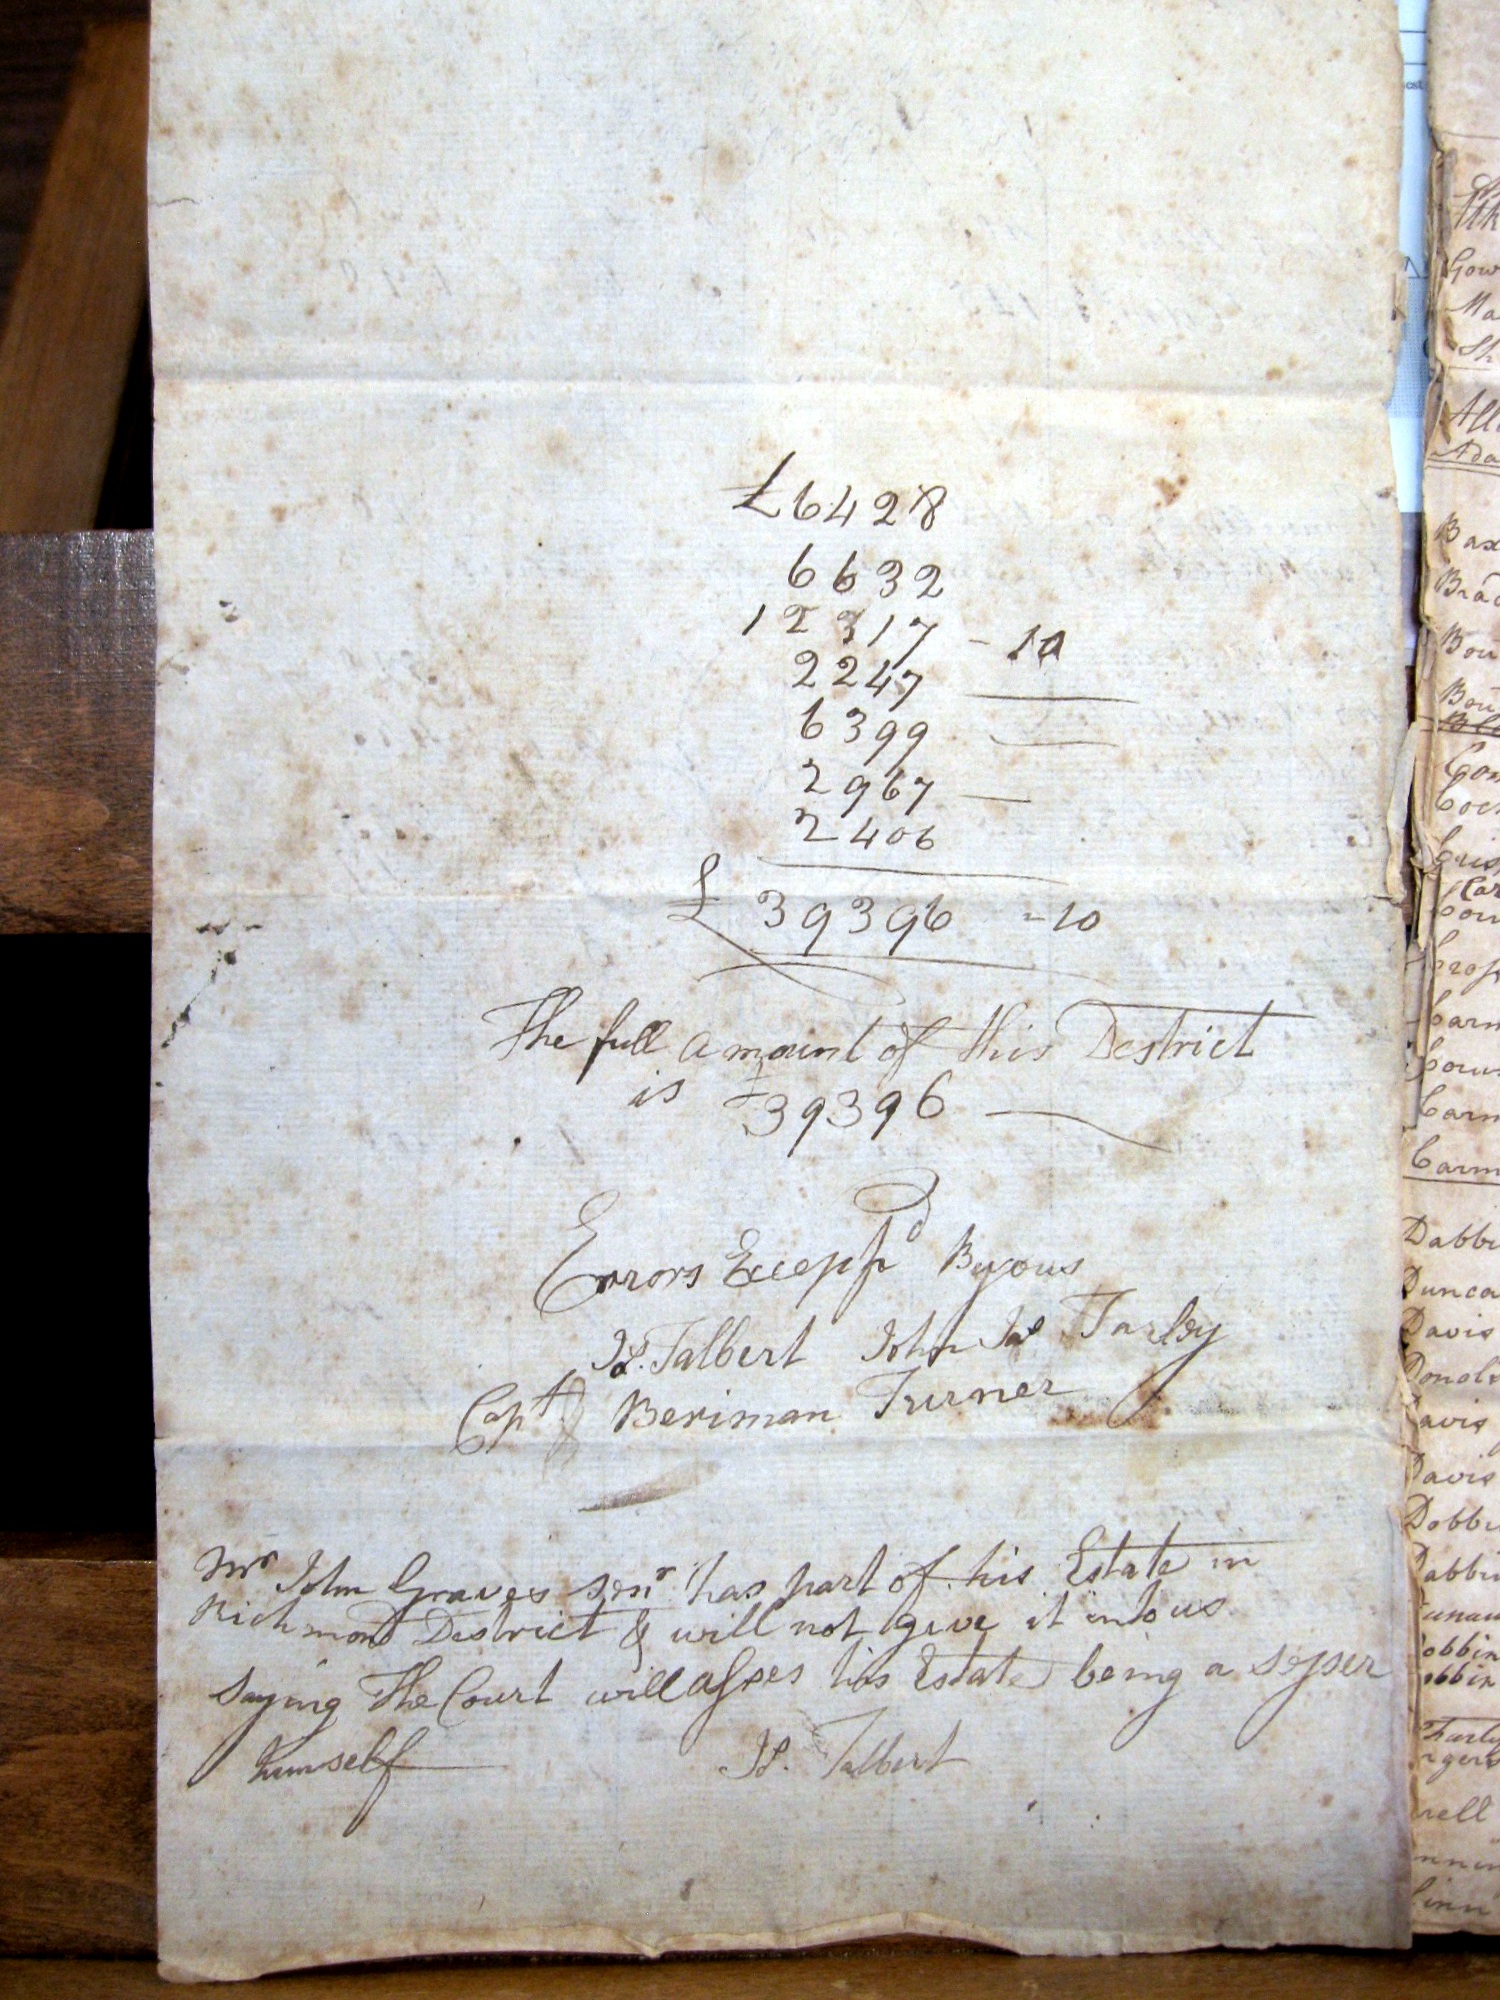 £6428
6632
12317 - 10
2247
6399
2967
2406
£ 39396 - 10
The full amount of this District
is £39396
Errors Excepp'd By ous
Js. Talbert John Jas Farley
Capt Beriman Turner
Mr John Graves senr has part of his Estate in
Richmond District & will not give it into us
saying The Court will asses his Estate being a sesser
himself Js. Talbert
Gow
Ma
Sh
Alle
Ada
Bax
Brad
Bou
Bou
Dabbi
Dunca
Davis
Donals
avis
Davis
Dobbi
Dabbi
unaw
obbin
obbin
Farly
rell